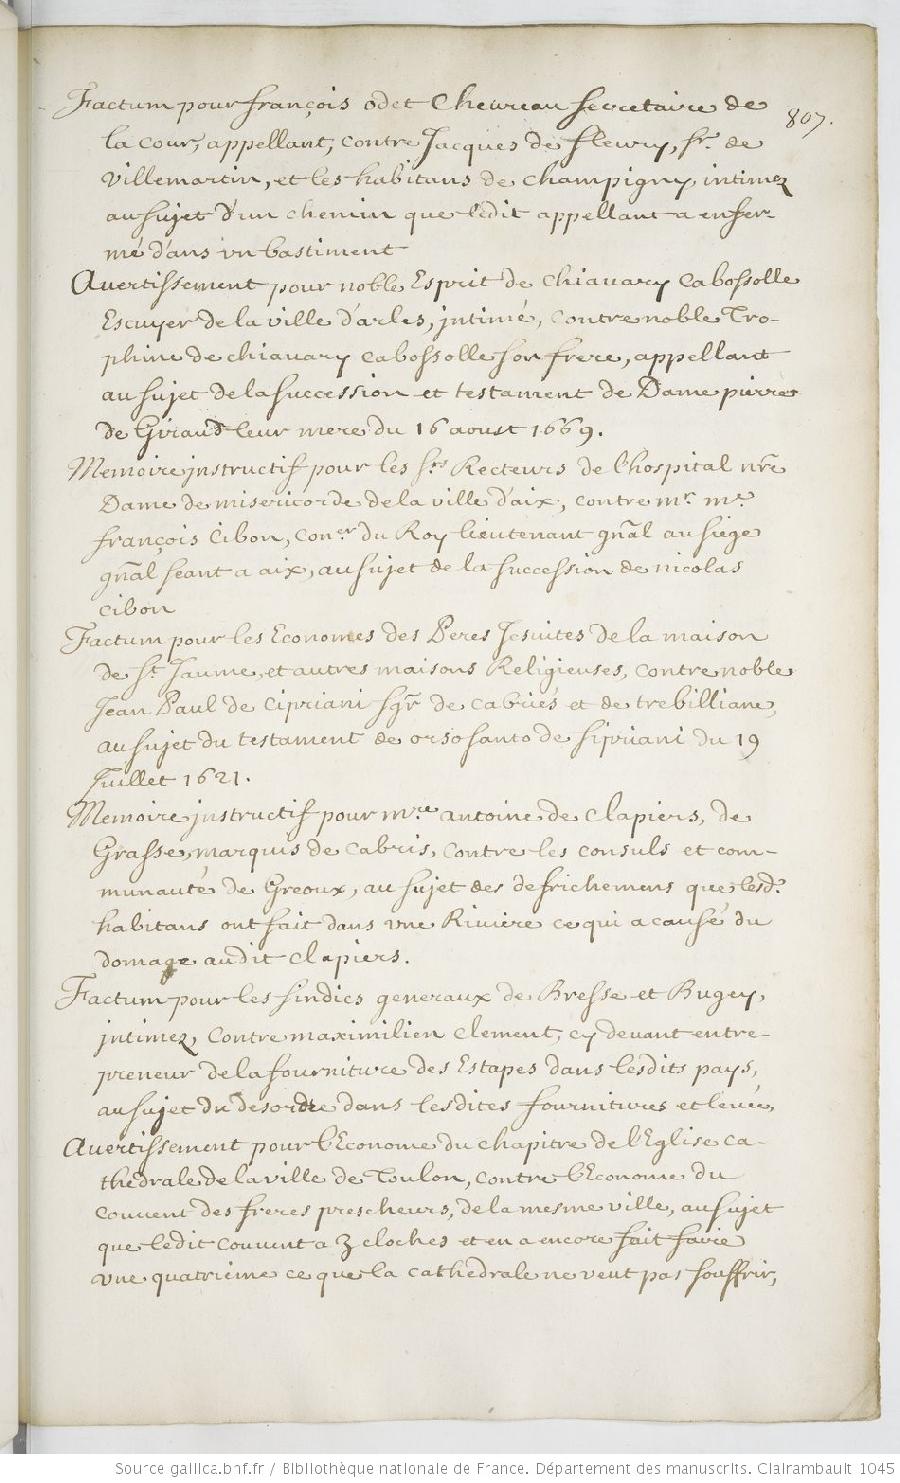 Factum pour françois odet Cheureau secretaire de
807.
la cour, appellant, contre Jacques de fleury, sr. de
villemartin, et les habitans de champigny, intimez
au sujet d'un chemin que ledit appellant a enfer-
mé d'ans un bastiment
Auertissement pour noble Esprit de chiauary Cabossolle
Escuyer de la ville d'arles, jntimé, contre noble Tro-
phime de chiauary cabossolle son frere, appellant
au sujet de la succession et testament de Dame pierre
de Giraud leur mere du 16 aoust 1669.
Memoire jnstructif pour les srs Recteurs de l'hospital nre
Dame de misericorde de la ville d'aix, contre mr. me.
françois Cibon, coner du Roy lieutenant gñal au siege
gñal seant a aix, au sujet de la succession de nicolas
cibon
Factum pour les Economes des Peres Jesuites de la maison
de st Jaume, et autres maisons Religieuses, contre noble
Jean Paul de Cipriani sgr de Cabriés et de trebilliane,
au sujet du testament de orsosanto de sipriani du 19
Juillet 1621.
Memoire jnstructif pour mre. antoine de Clapiers, de
Grasse, marquis de Cabris, contre les consuls et com-
munauté de Greoux, au sujet des defrichemens que lesd.
habitans ont fait dans vne Riuiere ce qui a causé du
domage audit Clapiers.
Factum pour les sindics generaux de Bresse et Bugey,
jntimez, contre maximilien Clement, cy deuant entre-
preneur de la fourniture des Estapes dans lesdits pays,
au sujet du desordre dans lesdites fournitures et leuée,
Auertissement pour l'Econome du chapitre de l'Eglise ca-
thedrale de la ville de Toulon, contre l'Econome du
couuent des freres prescheurs, de la mesme ville, au sujet
que ledit couuent a 3 cloches et en a encore fait faire
vne quatrieme ce que la cathedrale ne veut pas souffrir,
Source gallica.bnf.fr / Bibliothèque nationale de France. Département des manuscrits. Clairambault 1045